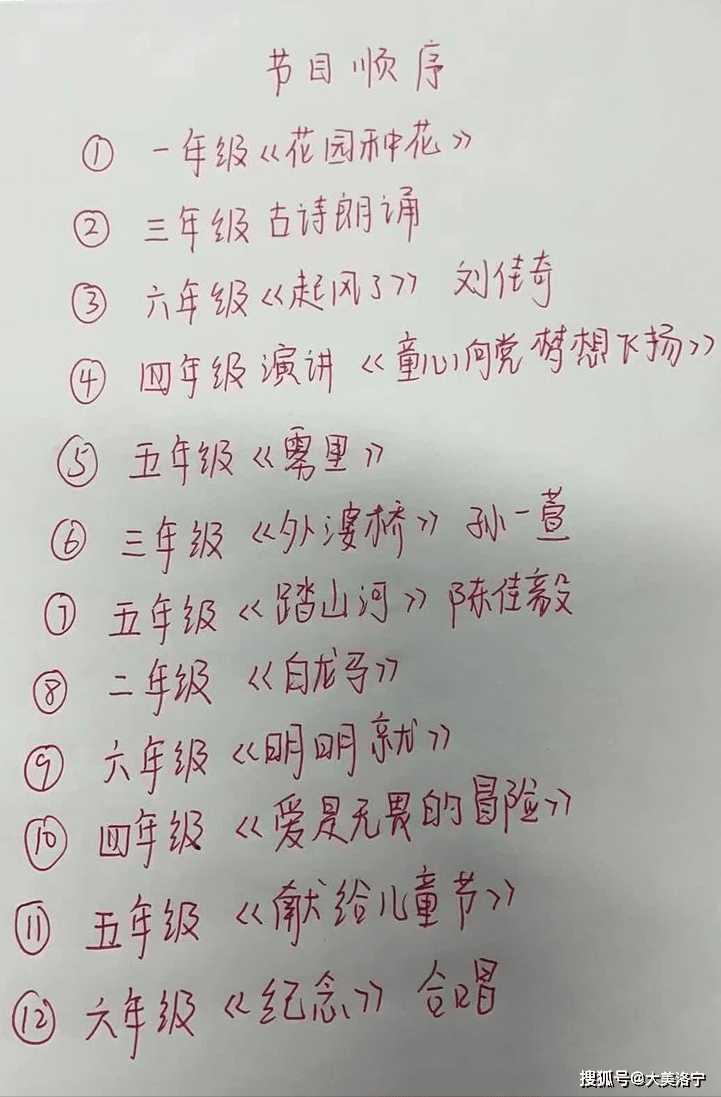 节目顺序
① 一年级《花园种花》
② 三年级 古诗朗诵
③ 六年级《起风了》 刘佳奇
④ 四年级 演讲 《童心向党 梦想飞扬》
⑤ 五年级《雾里》
⑥ 三年级《外婆桥》 孙一萱
⑦ 五年级《踏山河》 陈佳毅
⑧ 二年级 《白龙马》
⑨ 六年级《明明就》
⑩ 四年级 《爱是无畏的冒险》
⑪ 五年级 《献给儿童节》
⑫ 六年级《纪念》 合唱
搜狐号@大美洛宁